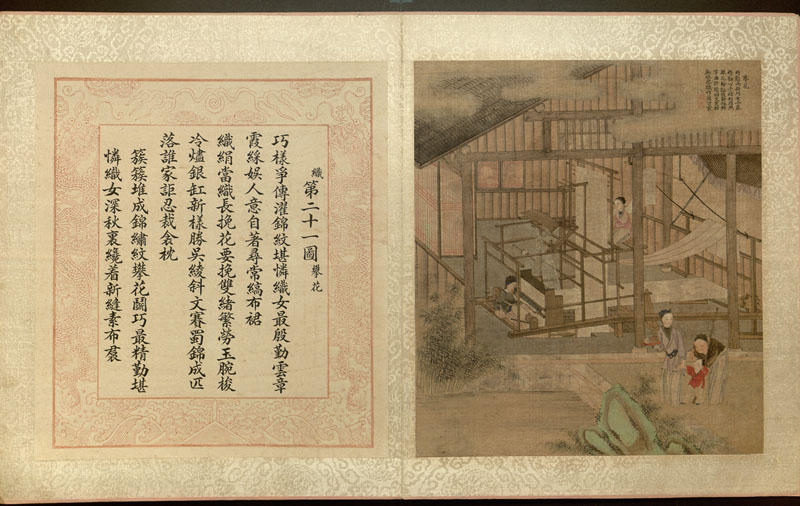 織 第二十一圖 攀花
巧樣爭傳濯錦紋堪憐織女最殷勤雲章
霞綵娛人意自著尋常縞布裙
織絹當織長挽花要挽雙緒繁勞玉腕梭
冷燼銀缸新樣勝吳綾斜文賽蜀錦成匹
落誰家詎忍裁衾枕
簇簇堆成錦繡紋攀花鬪巧最精勤堪
憐織女深秋裏纔着新縫素布裠
攀花